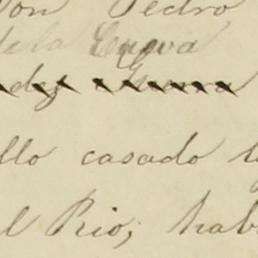 Don Pedro
de la Cueva
llo casado
l Rio; hab